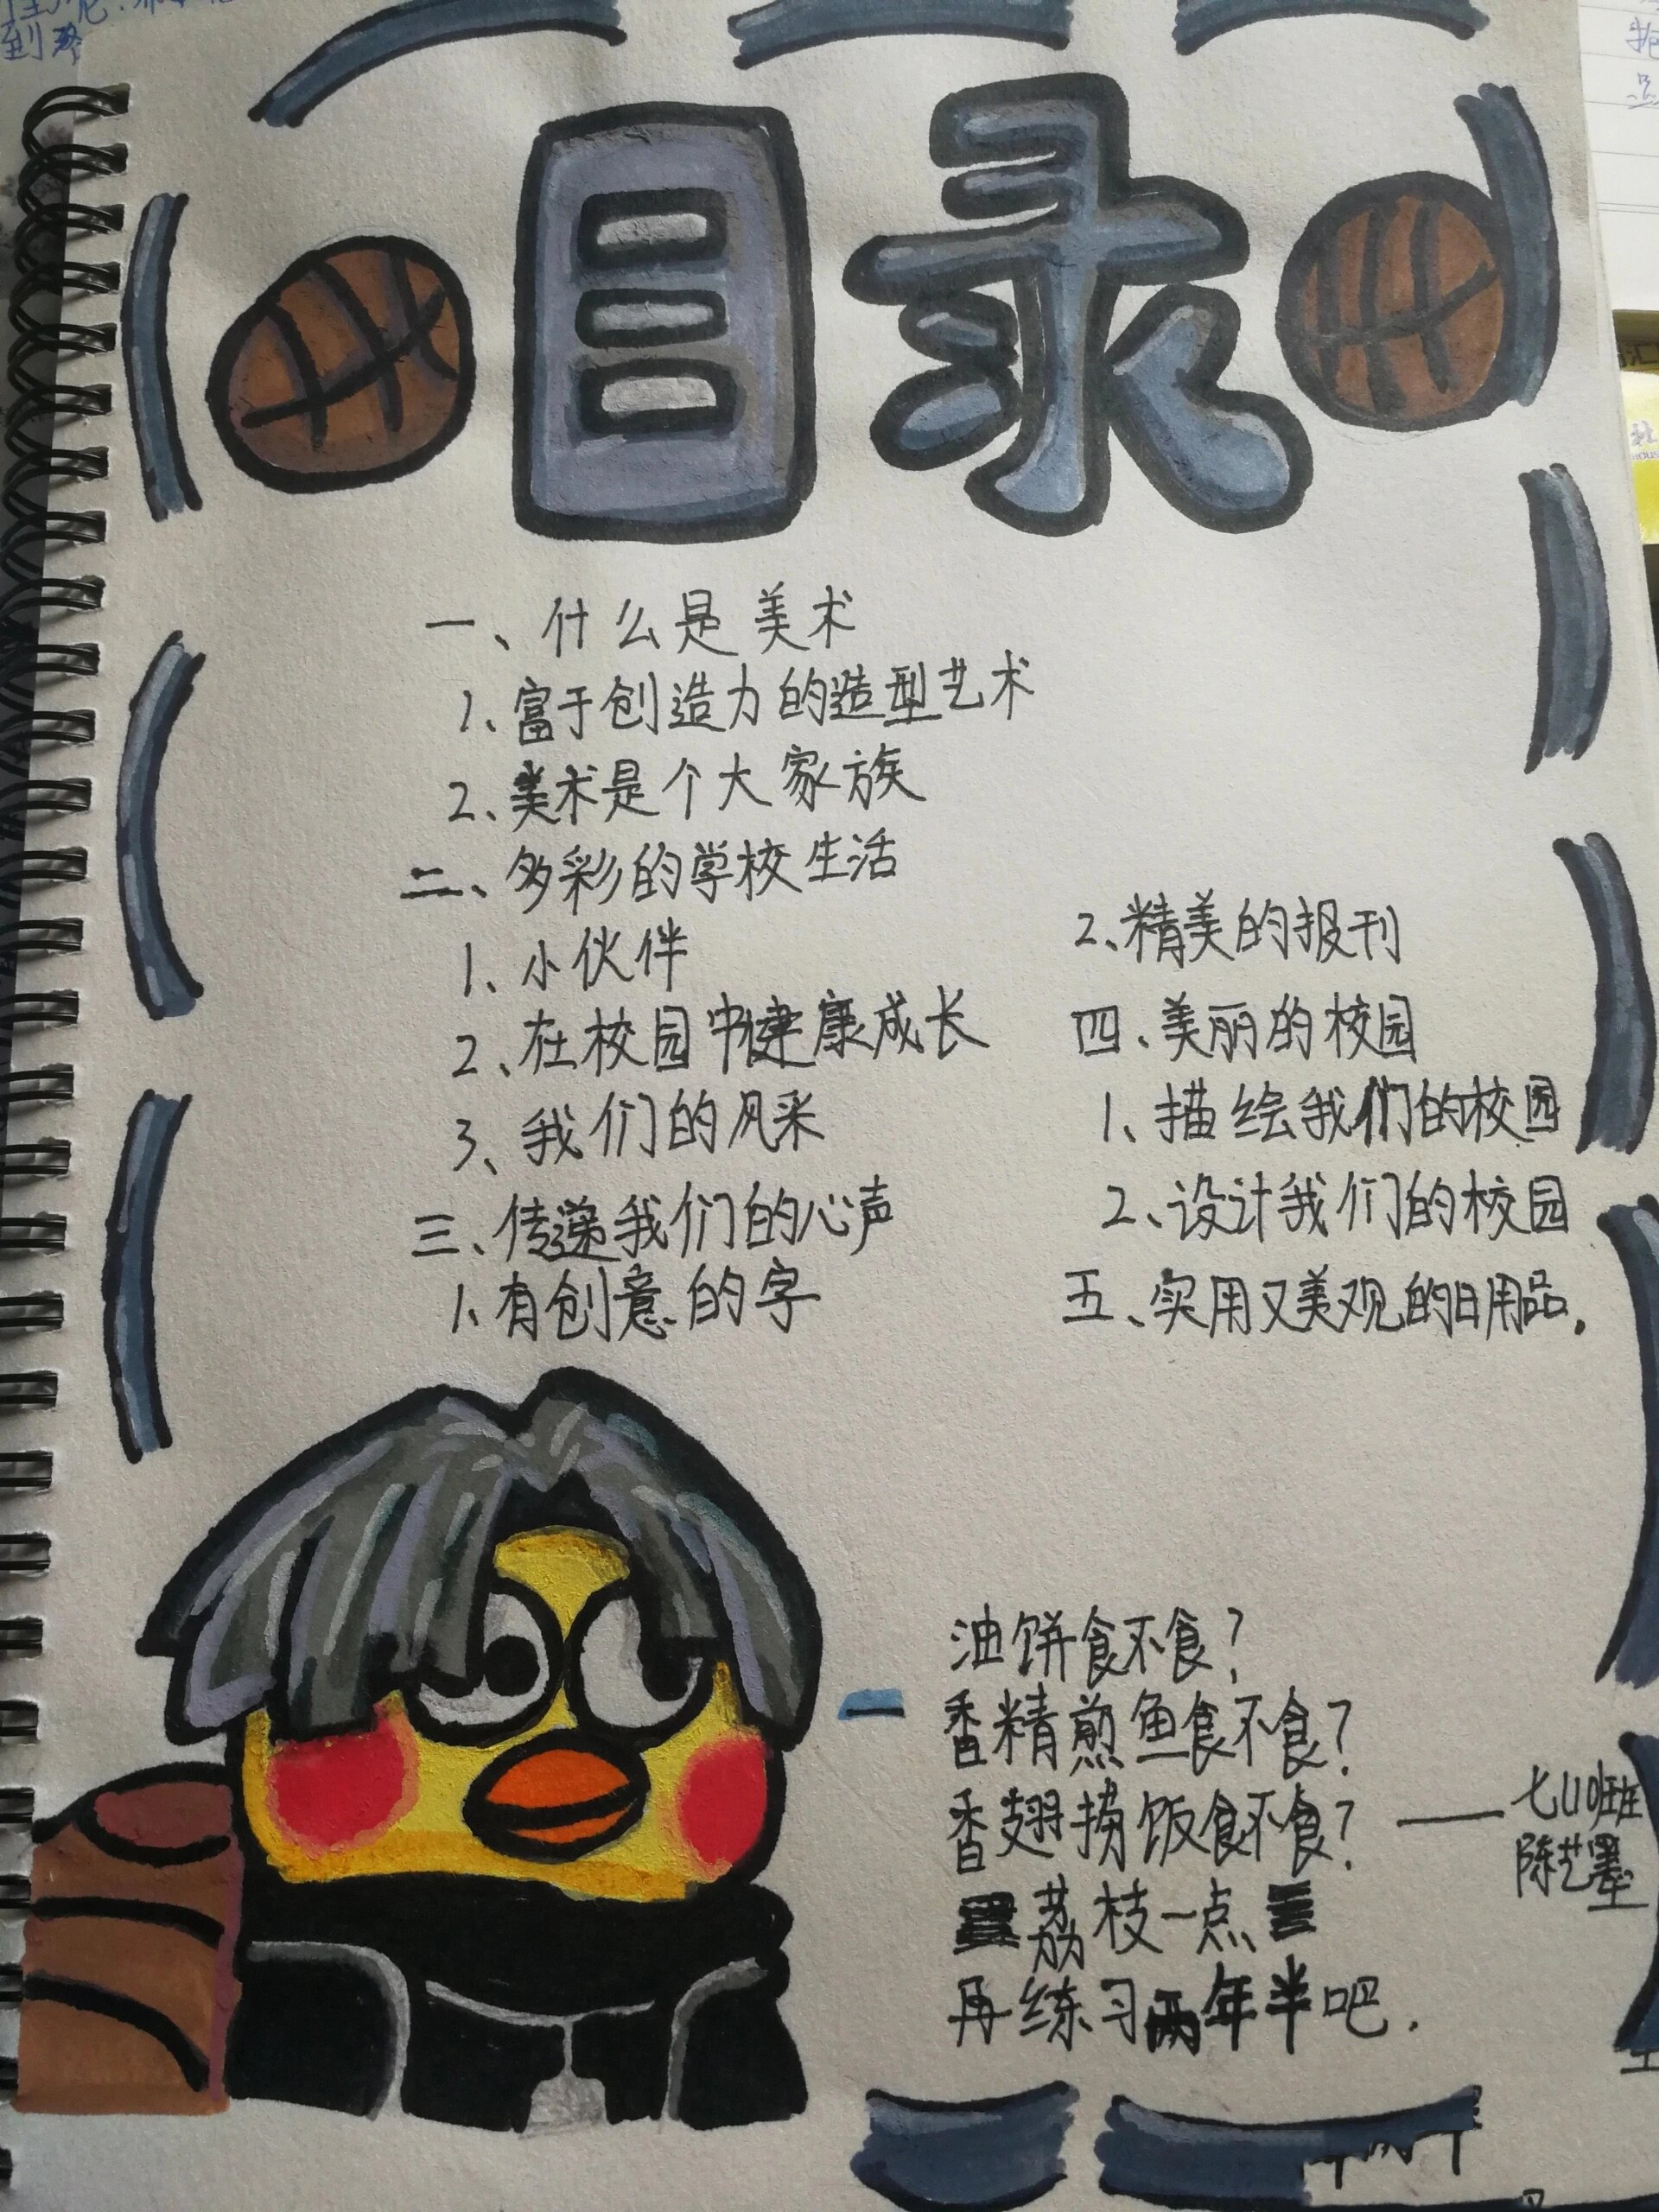 目录
一、什么是美术
1、富于创造力的造型艺术
2、美术是个大家族
二、多彩的学校生活
1、小伙伴
2、在校园中健康成长
3、我们的风采
三、传递我们的心声
1、有创意的字
2、精美的报刊
四、美丽的校园
1、描绘我们的校园
2、设计我们的校园
五、实用又美观的日用品.
油饼食不食?
香精煎鱼食不食?
香翅捞饭食不食?
荔枝一点
再练习两年半吧.
陈艺墨
到